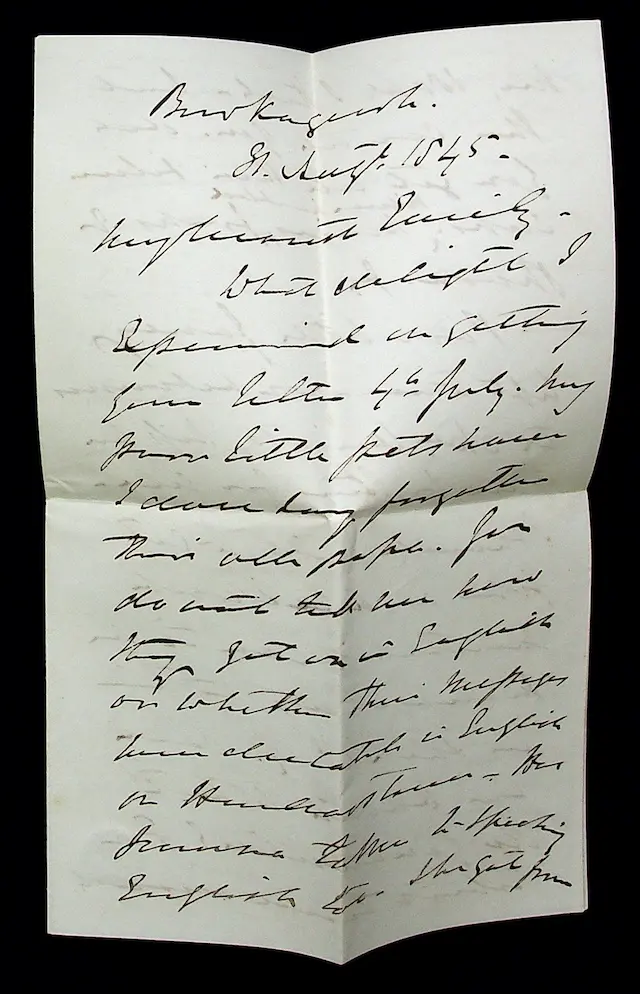 31. Augt. 1845.
My dearest Emily.
What delight I
experienced on getting
your letter 4th July. My
poor little pets have
I dare say forgotten
their old papa. You
do not tell me how
they get on in English
or whether their messages
were dictated in English
or Hindoostanee - Has
taken to speaking
English to. She got from